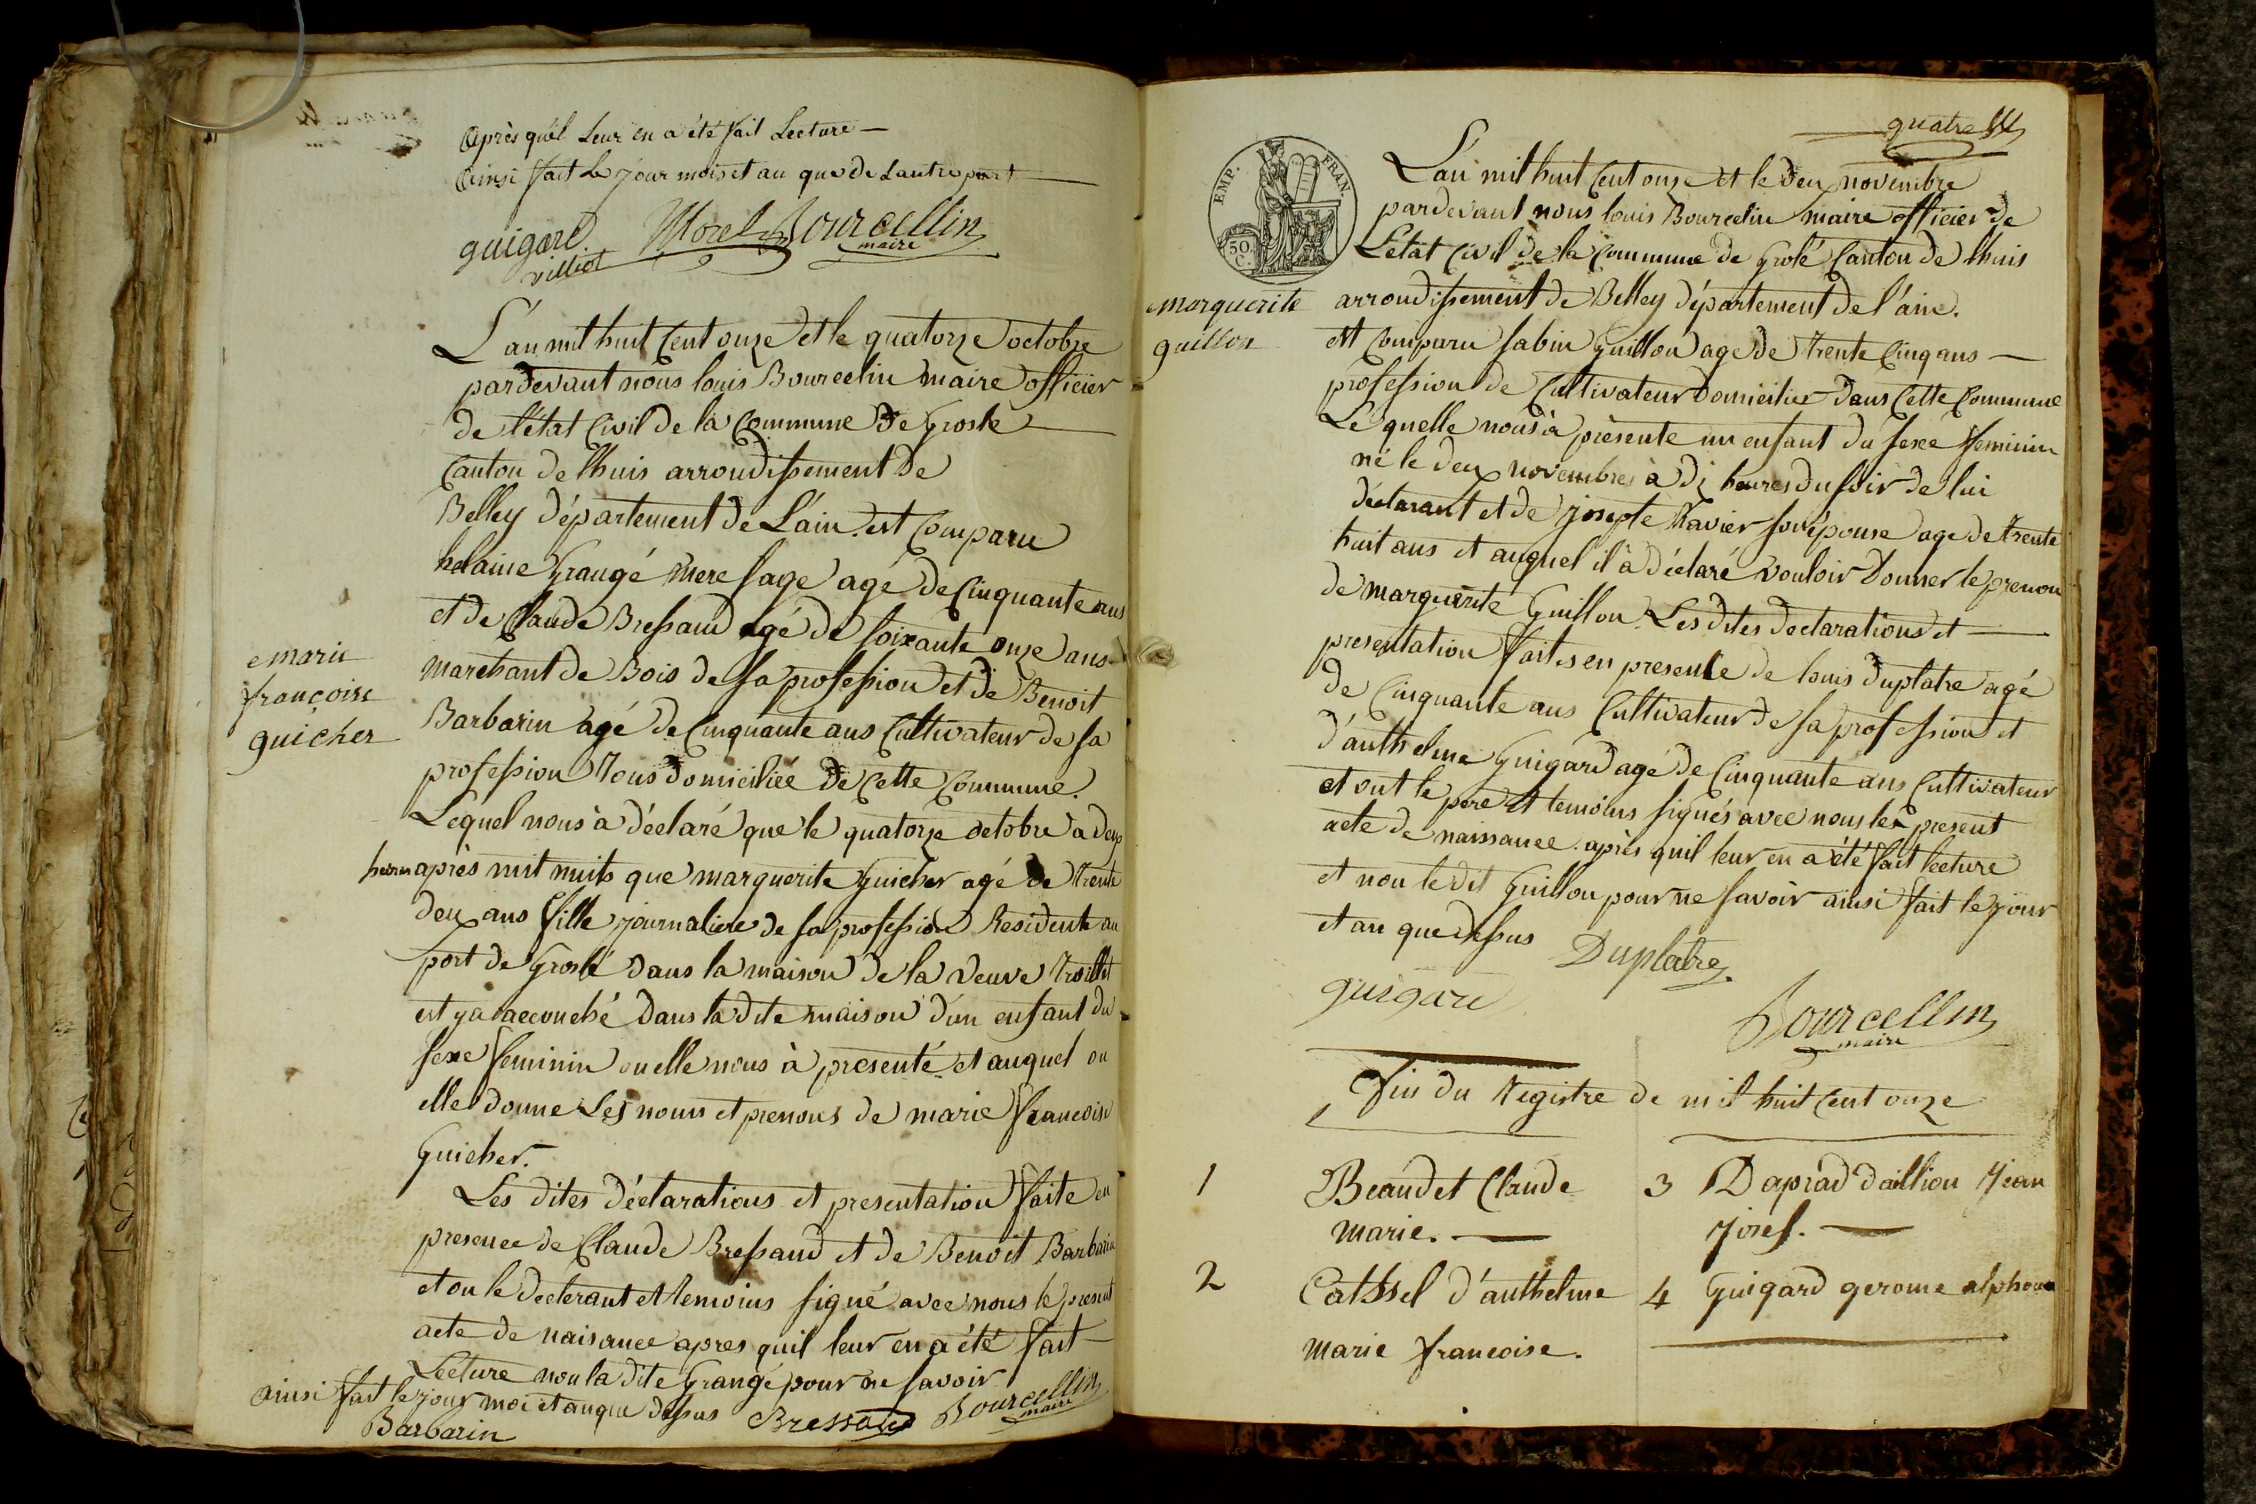 Après quil Leur en a été fait Lecture —
Ainsi fait le jour mois et an que de Lautre part
guigard Morel Bourcellin
villiot maire
L'an mil huit Cent onze et le quatorze octobre
pardevant nous louis Bourcelin maire officier
de l'état Civil de la Commune de Grosle
Canton de lhuis arrondissement de
Belley département de L'ain. est Comparu
helaine Grangé mere sage agé de Cinquante ans
et de Claude Bressand agé de soixante onze ans
marchant de Bois de sa profession et de Benoit
Barbarin agé de Cinquante ans Cultivateur de sa
profession Tous domiciliée de Cette Commune.
Lequel nous à déclaré que le quatorze octobre a deux
heures après mit nuits que marguerite Guicher agé de trente
deux ans fille journaliere de sa profession Residente au
port de Groslé dans la maison de la veuve Troillet
est y a accouché dans la dite maison d'un enfant du
sexe feminin ou elle nous à presenté et auquel ou
elle donne Les noms et prenoms de marie francoise
Guicher.
marie
françoise
guicher
Les dites déclarations et presentation faite en
presence de Claude Bressand et de Benoit Barbarin
et on le declerant et temoins signé avec nous le present
acte de naisance apres quil leur en a été fait
Lecture non la dite Grangé pour ne savoir
ainsi fait le jour moi et anque dessus Bressand Bourcellin
Barbarin maire
quatre
EMP. FRAN.
50 C.
L'an mil huit Cent onze et le deux novembre
pardevant nous louis Bourcelin maire officier de
L'état Civil de la Commune de Grolé Canton de lhuis
arrondissement de Belley département de l'ain.
marguerite
guillon
est Comparu sabin Guillon age de trente Cinq ans —
profession de Cultivateur domicilie dans Cette Commune
Le quelle nous à présente un enfant du sexe feminin
né le deux novembre à di heures du soir de lui
déclarant et de josepte Ravier son epouse age de trente
huit ans et auquel il à déclaré vouloir donner le prenom
de marguerite Guillon. Les dites declarations et —
presentation faites en presence de louis Duplatre agé
de Cinquante ans Cultivateur de sa profession et
d'anthelme Guigard agé de Cinquante ans Cultivateur
et ont le pere et temoins signés avec nous les present
acte de naissance. après quil leur en a été fait lecture
et non le dit Guillon pour ne savoir ainsi fait le jour
et an que dessus Duplatre
guigard
Bourcellin
maire
Fin du Registre de mil huit Cent onze
1 Beaudet Claude
marie. —
2 Cathsel d'anthelme
marie francoise.
3 Daprad d'aillion jean
josef. —
4 Guigard gerome alphonse